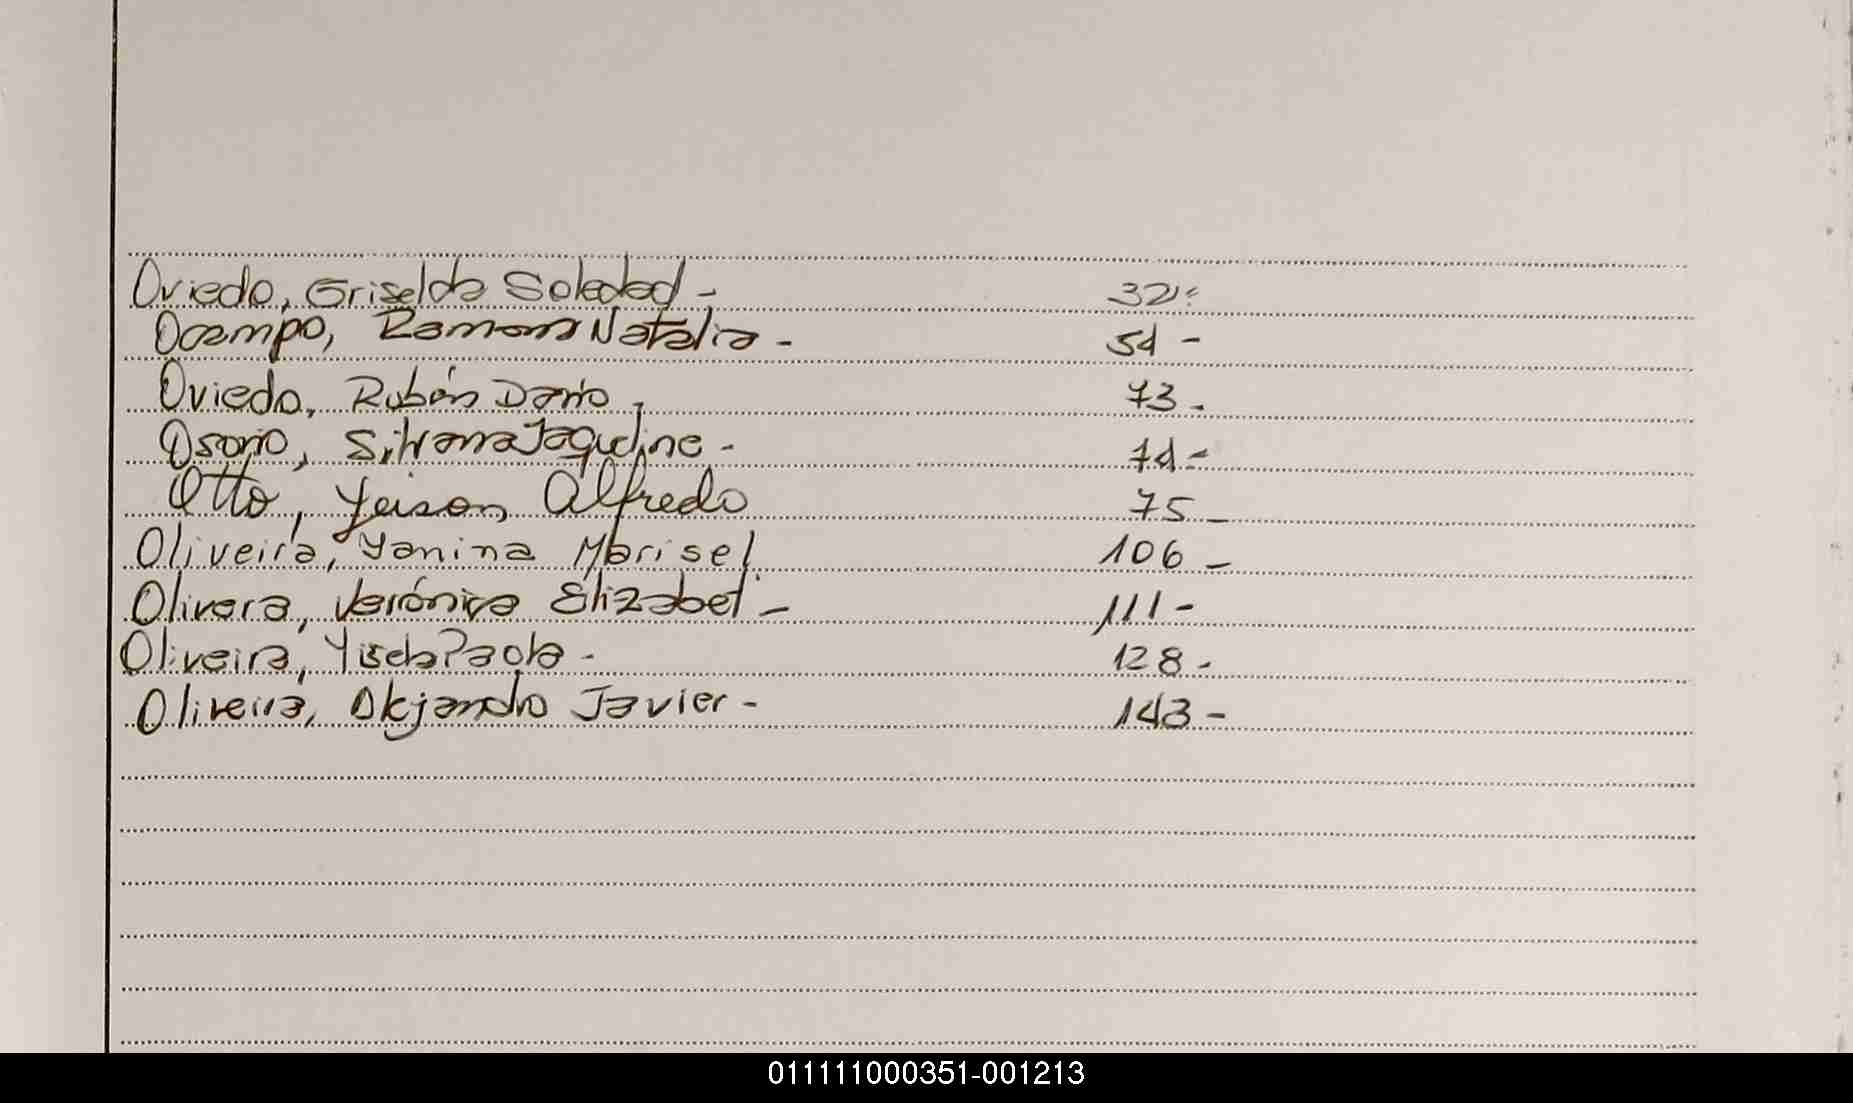 Oviedo, Griselda Soledad - 32 -
Ocampo, Ramona Natalia - 54 -
Oviedo, Rubén Darío - 73 -
Osorio, Silvana Jaqueline - 74 -
Otto, Yeison Alfredo 75 -
Oliveira, Yanina Marisel. 106 -
Olivera, Verónica Elizabet - 111 -
Oliveira, Yisela Paola - 128 -
Oliveira, Alejandro Javier - 143 -
011111000351-001213